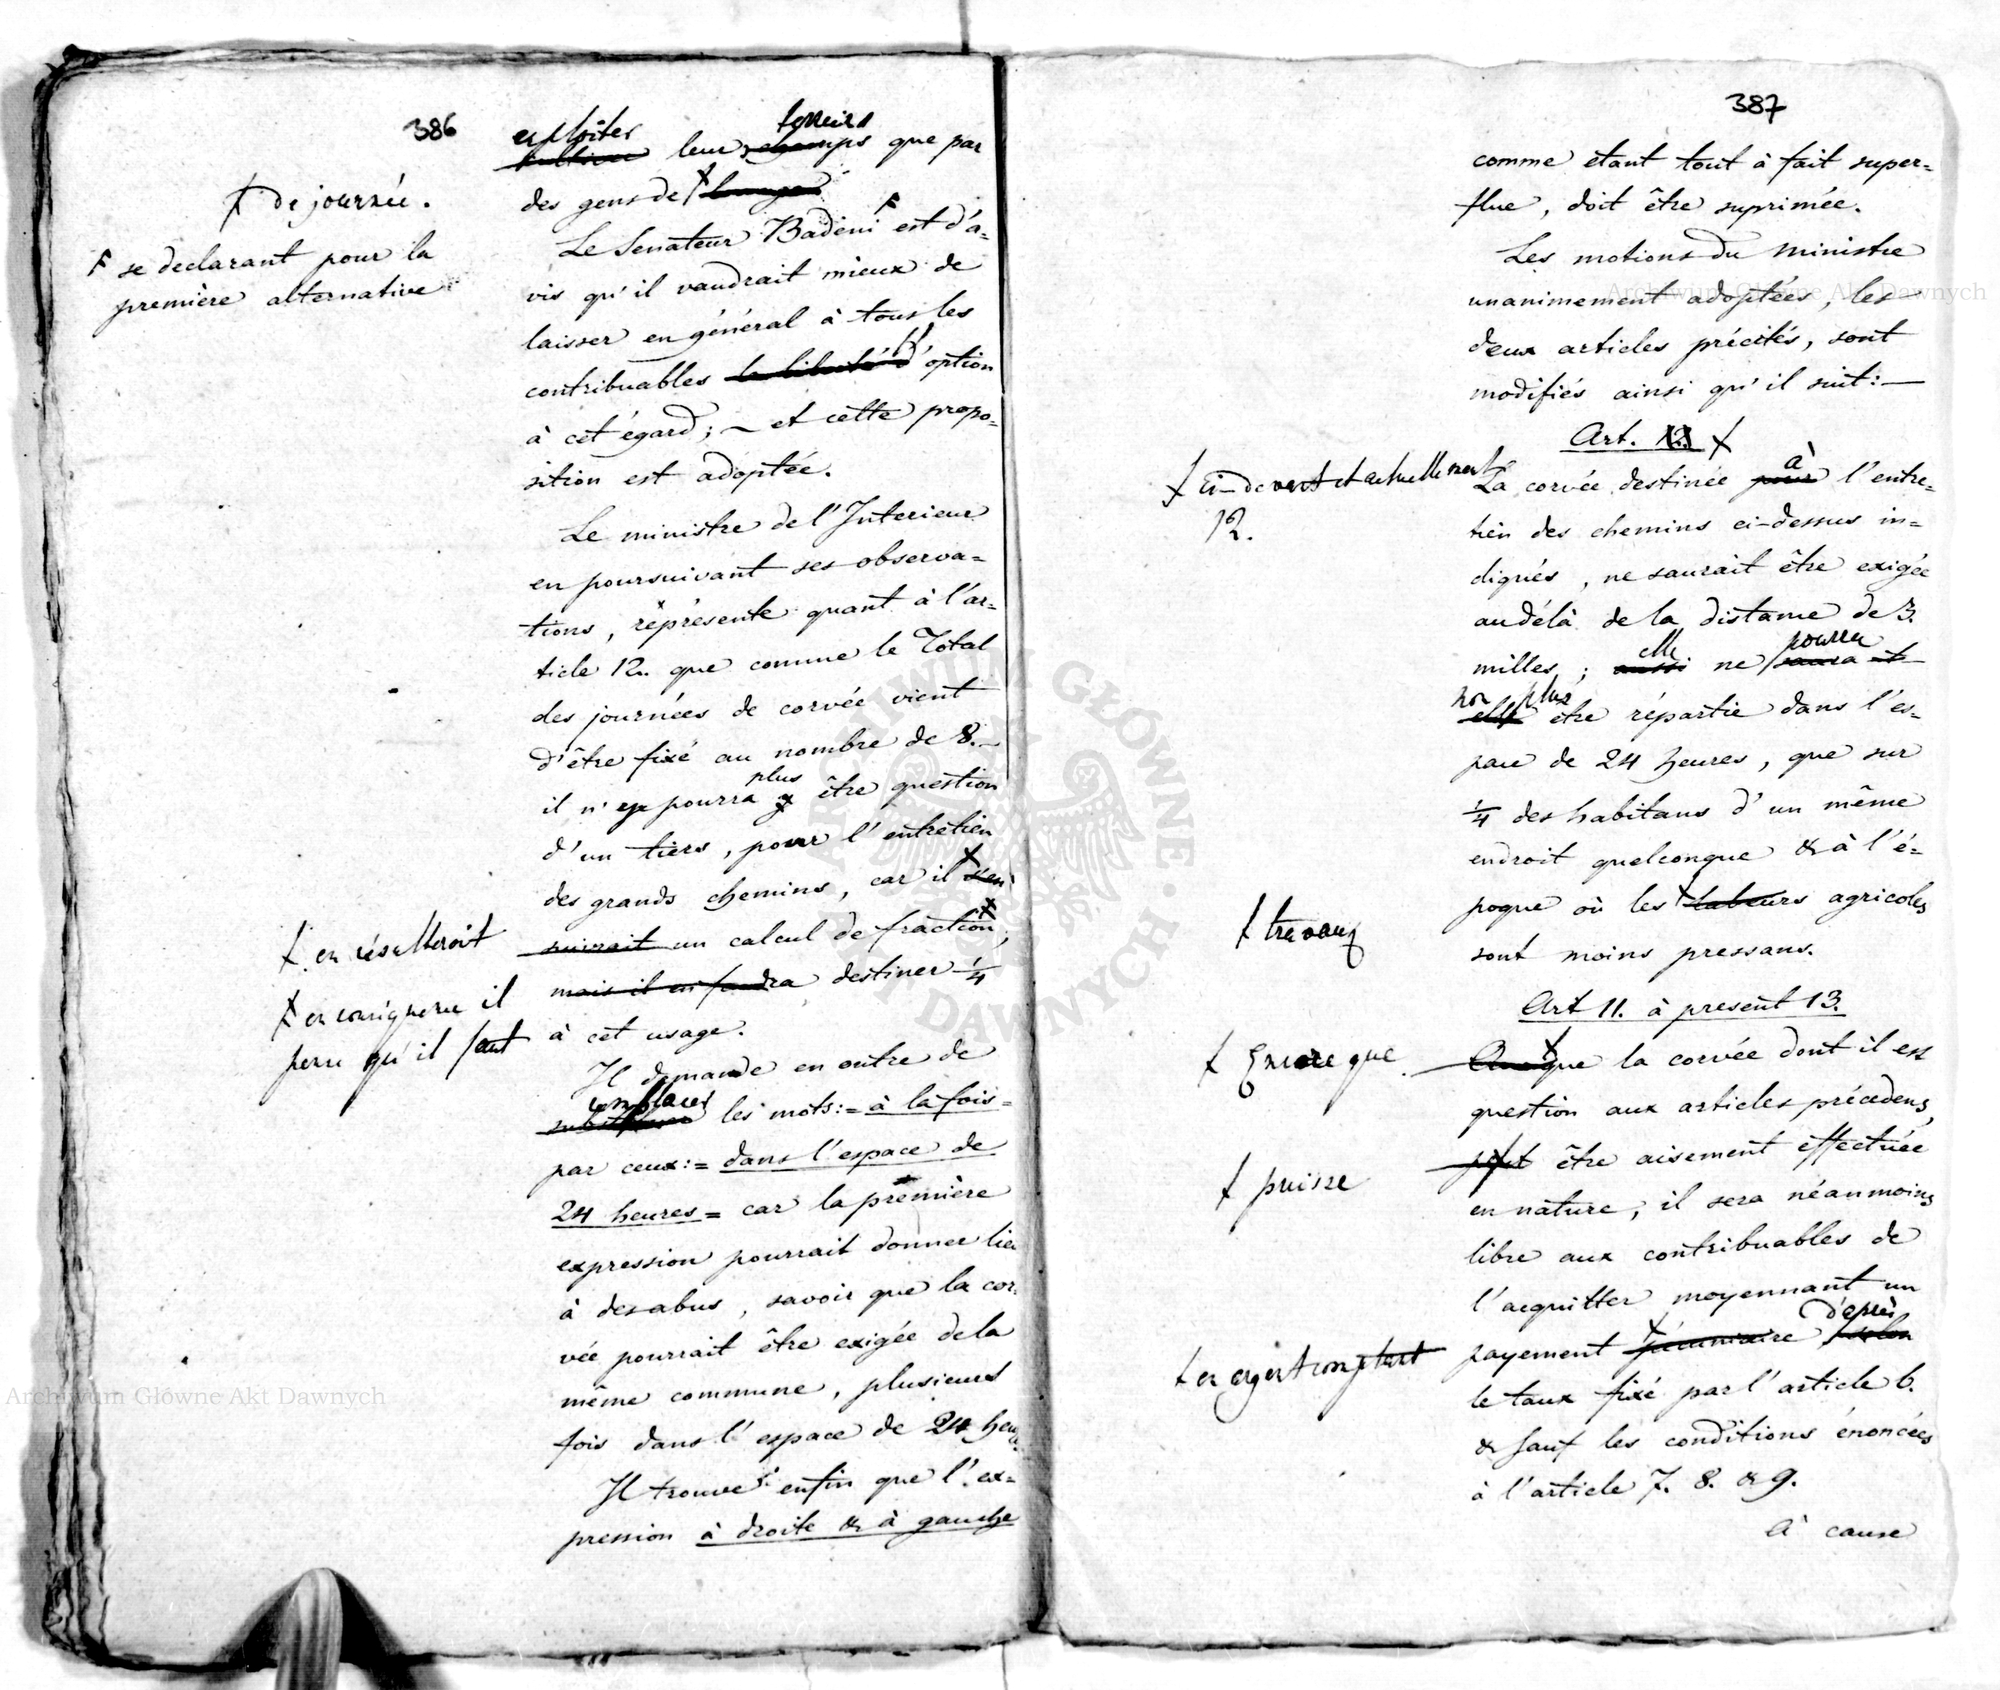 386
exploiter terreins
cultiver leurs champs que par
des gens de louage
† de journée.
Le Senateur Badeni est d'a=
F se declarant pour la
première alternative
vis qu'il vaudrait mieux de
laisser en général à tous les
contribuables la liberté d'option
à cet égard; – et cette propo=
sition est adoptée.
Le ministre de l'Interieur
en poursuivant ses observa=
tions, représente quant à l'ar=
ticle 12. que comme le Total
des journées de corvée vient
d'être fixé au nombre de 8. –
plus
il n'en pourra être question
d'un tiers, pour l'entretien
des grands chemins, car il s'en
† en résulteroit
suivrait un calcul de fraction,
mais il en faudra destiner ¼
† en consequence il
pense qu'il faut
à cet usage.
Il demande en outre de
remplacer
substituer les mots:= à la fois=
par ceux:= dans l'espace de
24 heures= car la première
expression pourrait donner lieu
à des abus, savoir que la cor=
vée pourrait être exigée de la
même commune, plusieurs
fois dans l'espace de 24 heures.
Il trouve enfin que l'ex=
pression à droite & à gauche
387
comme étant tout à fait super=
flue, doit être suprimée.
Les motions du ministre
unanimement adoptées, les
deux articles précités, sont
modifiés ainsi qu'il suit: —
Art. 12. †
† ci-devant et actuellement
12.
à
La corvée destinée pour l'entre=
tien des chemins ci-dessus in=
diqués, ne saurait être exigée
audélà de la distance de 3.
elle pourra
milles; aussi ne saura-t-
non plus
elle être répartie dans l'es=
pace de 24 heures, que sur
¼ des habitans d'un même
endroit quelconque & à l'é=
poque où les labeurs agricoles
† travaux
sont moins pressans.
Art 11. à present 13.
† Encore que
Quoique la corvée dont il est
question aux articles précedens,
† puisse
peut être aisement effectuée
en nature, il sera néanmoins
libre aux contribuables de
l'acquitter moyennant un
d'après
payement pécuniaire selon
† en argent comptant
le taux fixé par l'article 6.
& sauf les conditions énoncées
à l'article 7. 8. & 9.
à cause
Archiwum Główne Akt Dawnych
Archiwum Główne Akt Dawnych
ARCHIWUM GŁÓWNE AKT DAWNYCH